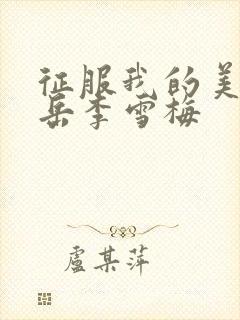 征服我的美
岳李雪梅
盧某萍